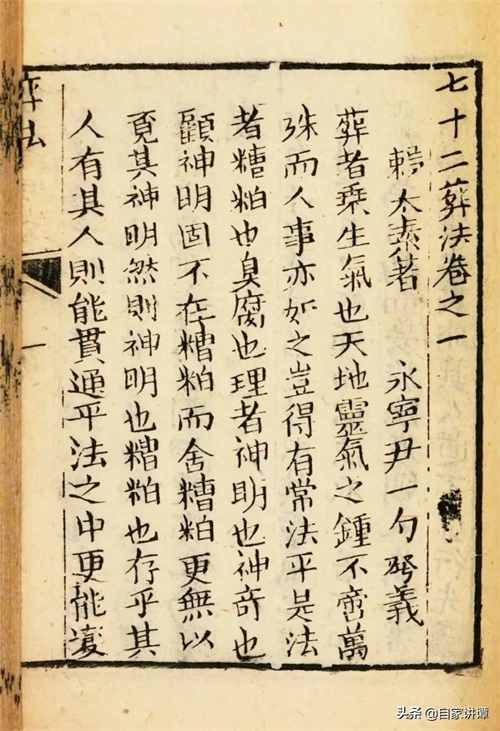 七十二葬法卷之一
賴太素著 永寧尹一勺發義
葬者乘生氣也天地靈氣之鍾不啻萬
殊而人事亦如之豈得有常法乎是法
者糟粕也臭腐也理者神明也神奇也
顧神明固不在糟粕而舍糟粕更無以
覓其神明然則神明也糟粕也存乎其
人有其人則能貫通乎法之中更能變
葬法
一
头条 @自家讲谭